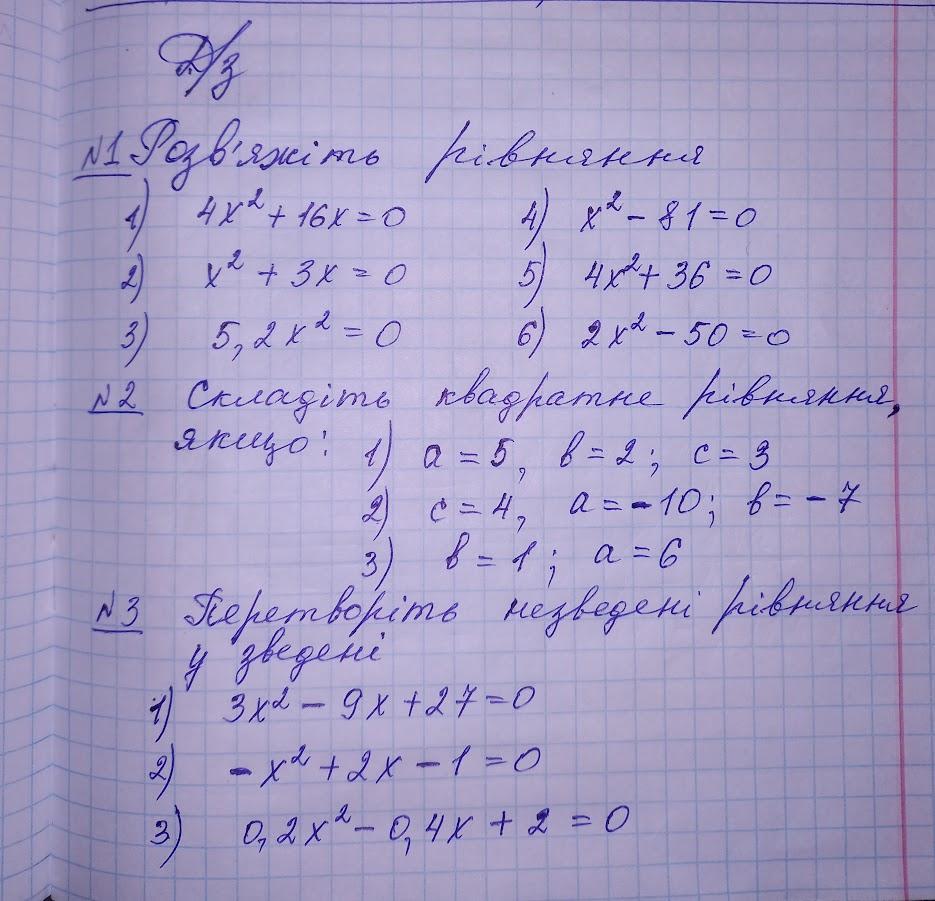 Д/з
№1 Розв'яжіть рівняння
1) 4x² + 16x = 0 4) x² - 81 = 0
2) x² + 3x = 0 5) 4x² + 36 = 0
3) 5,2x² = 0 6) 2x² - 50 = 0
№2 Складіть квадратне рівняння,
якщо: 1) a = 5, в = 2; c = 3
2) c = 4, a = -10; в = -7
3) в = 1; a = 6
№3 Перетворіть незведені рівняння
у зведені
1) 3x² - 9x + 27 = 0
2) -x² + 2x - 1 = 0
3) 0,2x² - 0,4x + 2 = 0